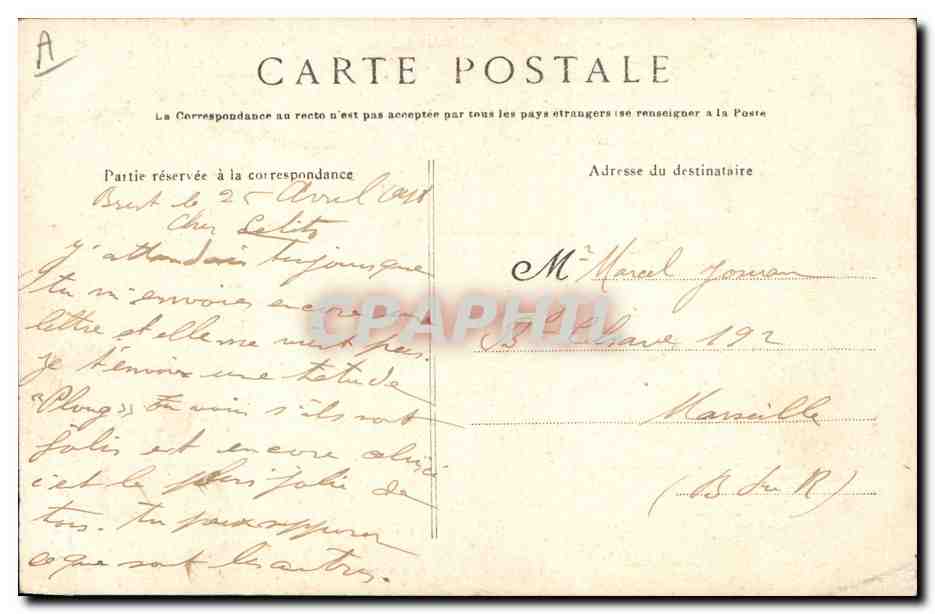 A
CARTE POSTALE
La Correspondance au recto n'est pas acceptée par tous les pays étrangers (se renseigner a la Poste
Partie réservée à la correspondance
Adresse du destinataire
Brest le 25 Avril
Cher
j'attendais toujours que
tu m'envoies encore une
lettre et elle ne vient pas.
je t'envoie une tete de
"Ploug" Tu vois s'ils sont
jolis et encore celui ci
c'est le plus jolie de
tous. Tu peux supposer
ce que sont les autres.
Mr Marcel
Bd Chave 192
Marseille
(B du R)
CPAPHIL